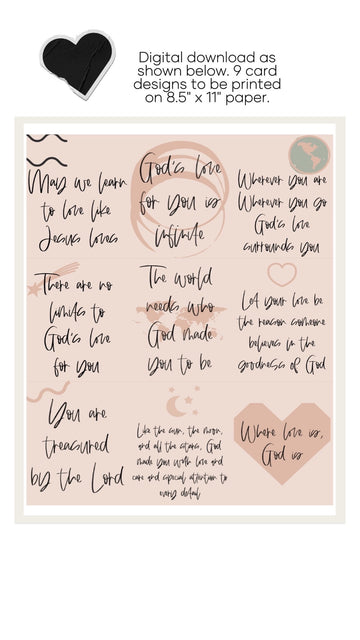 Digital download as
shown below. 9 card
designs to be printed
on 8.5" x 11" paper.
May we learn
to love like
Jesus loves
God's love
for you is
infinite
Wherever you are
Wherever you go
God's love
surrounds you
There are no
limits to
God's love
for you
The world
needs who
God made
you to be
Let your love be
the reason someone
believes in the
goodness of God
You are
treasured
by the Lord
Like the sun, the moon,
and all the stars, God
made you with love and
care and special attention to
every detail
Where love is,
God is